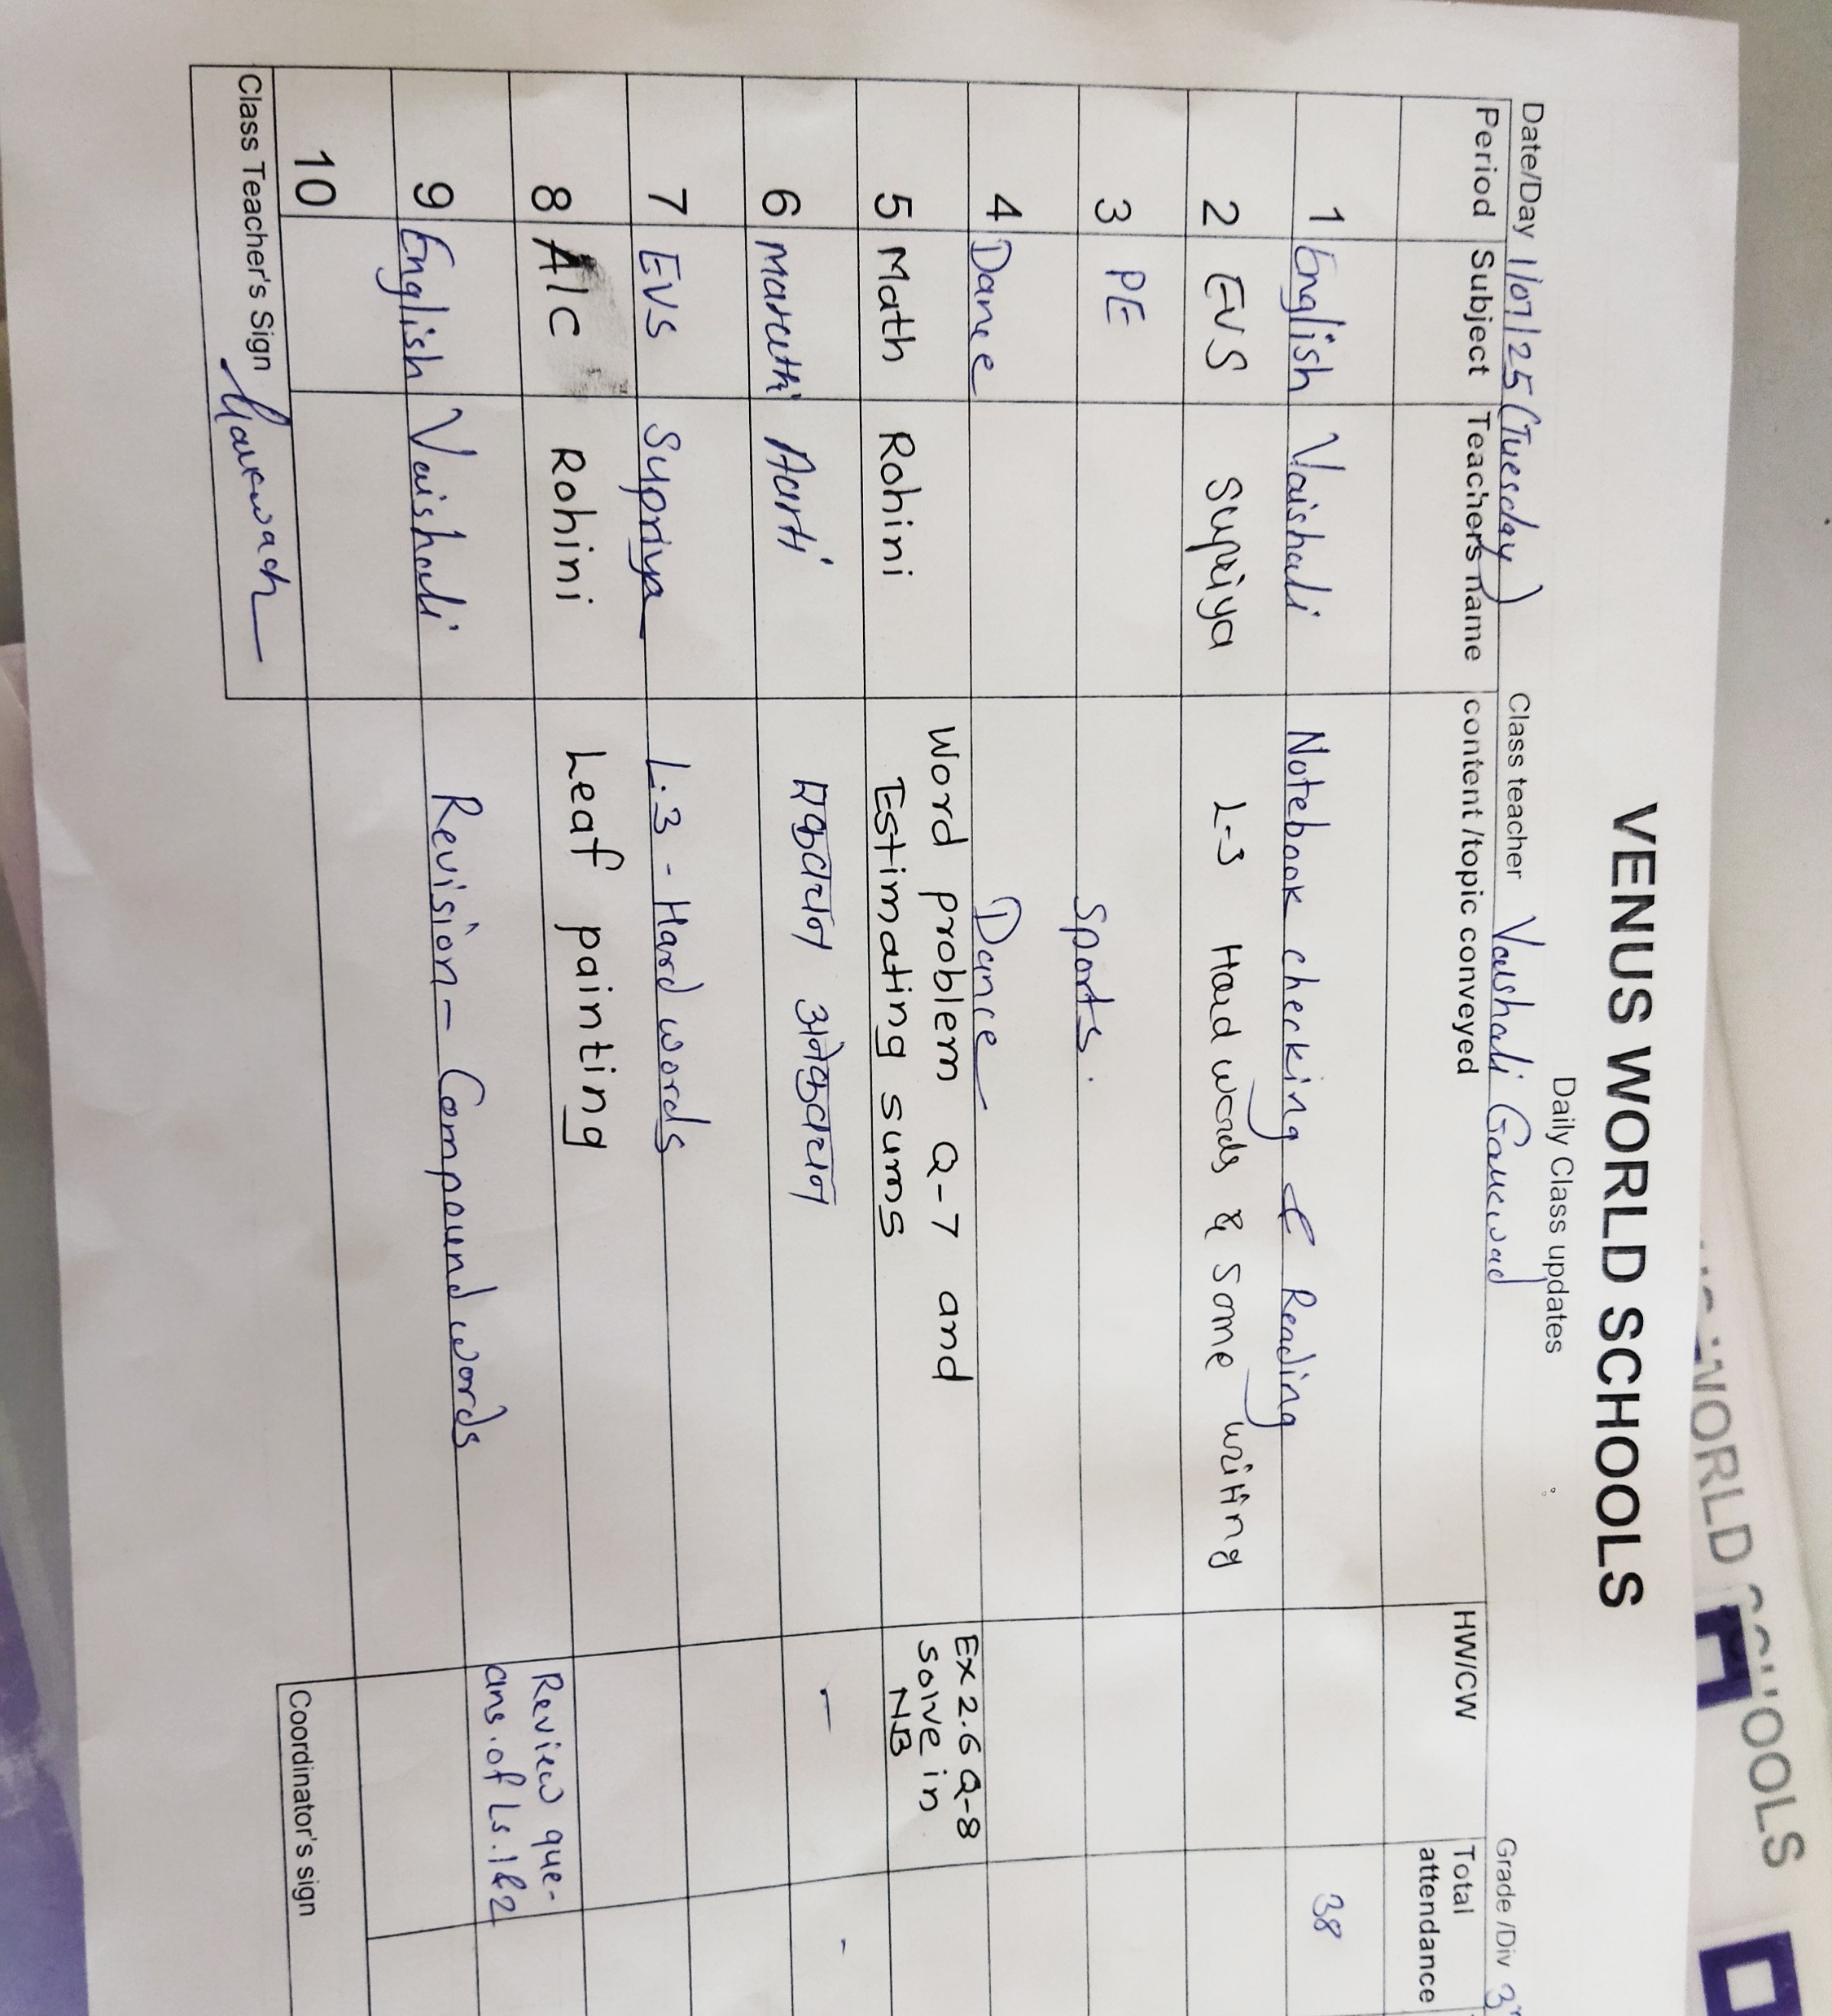 VENUS WORLD SCHOOLS
Daily Class updates
Date/Day 1/07/25 (Tuesday) Class teacher Vaishali Gaikwad Grade /Div
Period Subject Teachers name content /topic conveyed HW/CW Total attendance
1 English Vaishali Notebook checking & Reading 38
2 EVS Supriya L-3 Hard words & some writing
3 PE Sports.
4 Dance Dance
5 Math Rohini Word problem Q-7 and Ex 2.6 Q-8
Estimating sums solve in
NB
6 Marathi Aarti एकवचन अनेकवचन - -
7 EVS Supriya L.3 - Hard words
8 A/C Rohini Leaf painting
9 English Vaishali Revision - Compound words Review que-
ans. of Ls. 1&2
10
Class Teacher's Sign Coordinator's sign
WORLD SCHOOLS